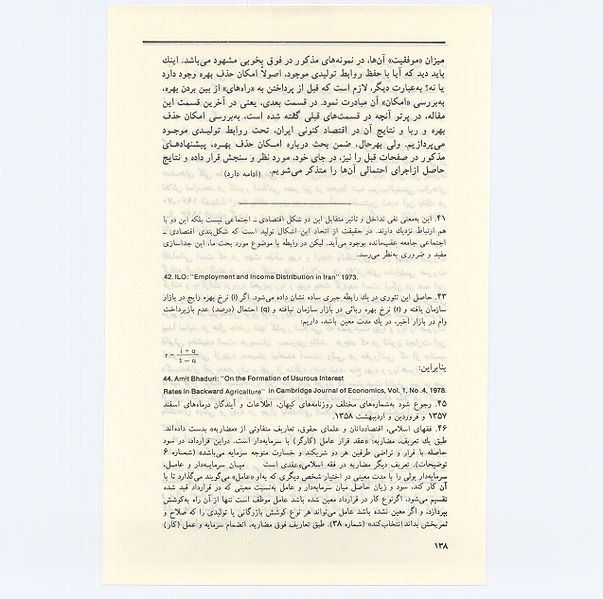 میزان «موفقیت» آن‌ها، در نمونه‌های مذکور در فوق بخوبی مشهود می‌باشد. اینك
باید دید که آیا با حفظ روابط تولیدی موجود، اصولاً امکان حذف بهره وجود دارد
یا نه؟ به‌عبارت دیگر، لازم است که قبل از پرداختن به «راه‌های» از بین بردن بهره،
به‌بررسی «امکان» آن مبادرت نمود. در قسمت بعدی، یعنی در آخرین قسمت این
مقاله، در پرتو آنچه در قسمت‌های قبلی گفته شده است، به‌بررسی امکان حذف
بهره و ربا و نتایج آن در اقتصاد کنونی ایران، تحت روابط تولیدی موجود
می‌پردازیم. ولی بهرحال، ضمن بحث درباره امکان حذف بهره، پیشنهادهای
مذکور در صفحات قبل را نیز، در جای خود، مورد نظر و سنجش قرار داده و نتایج
حاصل ازاجرای احتمالی آن‌ها را متذکر می‌شویم. (ادامه دارد)
۴۱. این به‌معنی نفی تداخل و تاثیر متقابل این دو شکل اقتصادی ـ اجتماعی نیست بلکه این دو با
هم ارتباط نزدیك دارند. در حقیقت از اتحاد این اشکال تولید است که شکل‌بندی اقتصادی ـ
اجتماعی جامعه عقب‌مانده بوجود می‌آید. لیکن در رابطه با موضوع مورد بحث ما، این جداسازی
مفید و ضروری به‌نظر می‌رسد.
42. ILO: "Employment and Income Distribution in Iran" 1973.
۴۳. حاصل این تئوری در یك رابطه جبری ساده نشان داده می‌شود. اگر (i) نرخ بهره رایج در بازار
سازمان یافته و (r) نرخ بهره ربائی در بازار سازمان نیافته و (q) احتمال (درصد) عدم بازپرداخت
وام در بازار اخیر، در یك مدت معین باشد، داریم:
r = i + q / 1 − q
بنابراین:
44. Amit Bhaduri: "On the Formation of Usurous Interest
Rates in Backward Agriculture" in Cambridge Journal of Economics, Vol. 1, No .4, 1978.
۴۵. رجوع شود به‌شماره‌های مختلف روزنامه‌های کیهان، اطلاعات و آیندگان درماه‌های اسفند
۱۳۵۷ و فروردین و اردیبهشت ۱۳۵۸.
۴۶. فقهای اسلامی، اقتصاددانان و علمای حقوق، تعاریف متفاوتی از «مضاربه» بدست داده‌اند.
طبق یك تعریف مضاربه: «عقد قرار عامل (کارگر) با سرمایه‌دار است. دراین قرارداد، در سود
حاصله با قرار و تراضی طرفین هر دو شریکند و خسارت متوجه سرمایه می‌باشد» (شماره ۶
توضیحات). تعریف دیگر مضاربه در فقه اسلامی«عقدی است میان سرمایه‌دار و عامل،
سرمایه‌دار پولی را با مدت معینی در اختیار شخص دیگری که به‌او «عامل» می‌گویند می‌گذارد تا با
آن کار کند، سود و زیان حاصل میان سرمایه‌دار و عامل به‌نسبت معینی که در قرارداد قید شده
تقسیم می‌شود، اگرنوع کار در قرارداد معین شده باشد عامل موظف است تنها از آن راه به‌کوشش
بپردازد، و اگر معین نشده باشد عامل می‌تواند هر نوع کوشش بازرگانی یا تولیدی را که صلاح و
ثمربخش بداند انتخاب‌کند» (شماره ۳۸). طبق تعاریف فوق مضاربه، انضمام سرمایه و عمل (کار)
۱۳۸